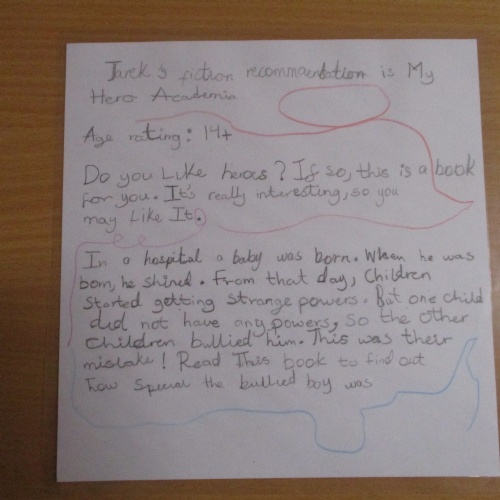 Jarek's fiction recommendation is My
Hero Academia
Age rating: 14+
Do you Like heroes? If so, this is a book
for you. It's really interesting, so you
may Like It.
In a hospital a baby was born. When he was
born, he shined. From that day, Children
Started getting strange powers. But one child
did not have any powers, so the other
Children bullied him. This was their
mistake! Read This book to find out
how special the bullied boy was